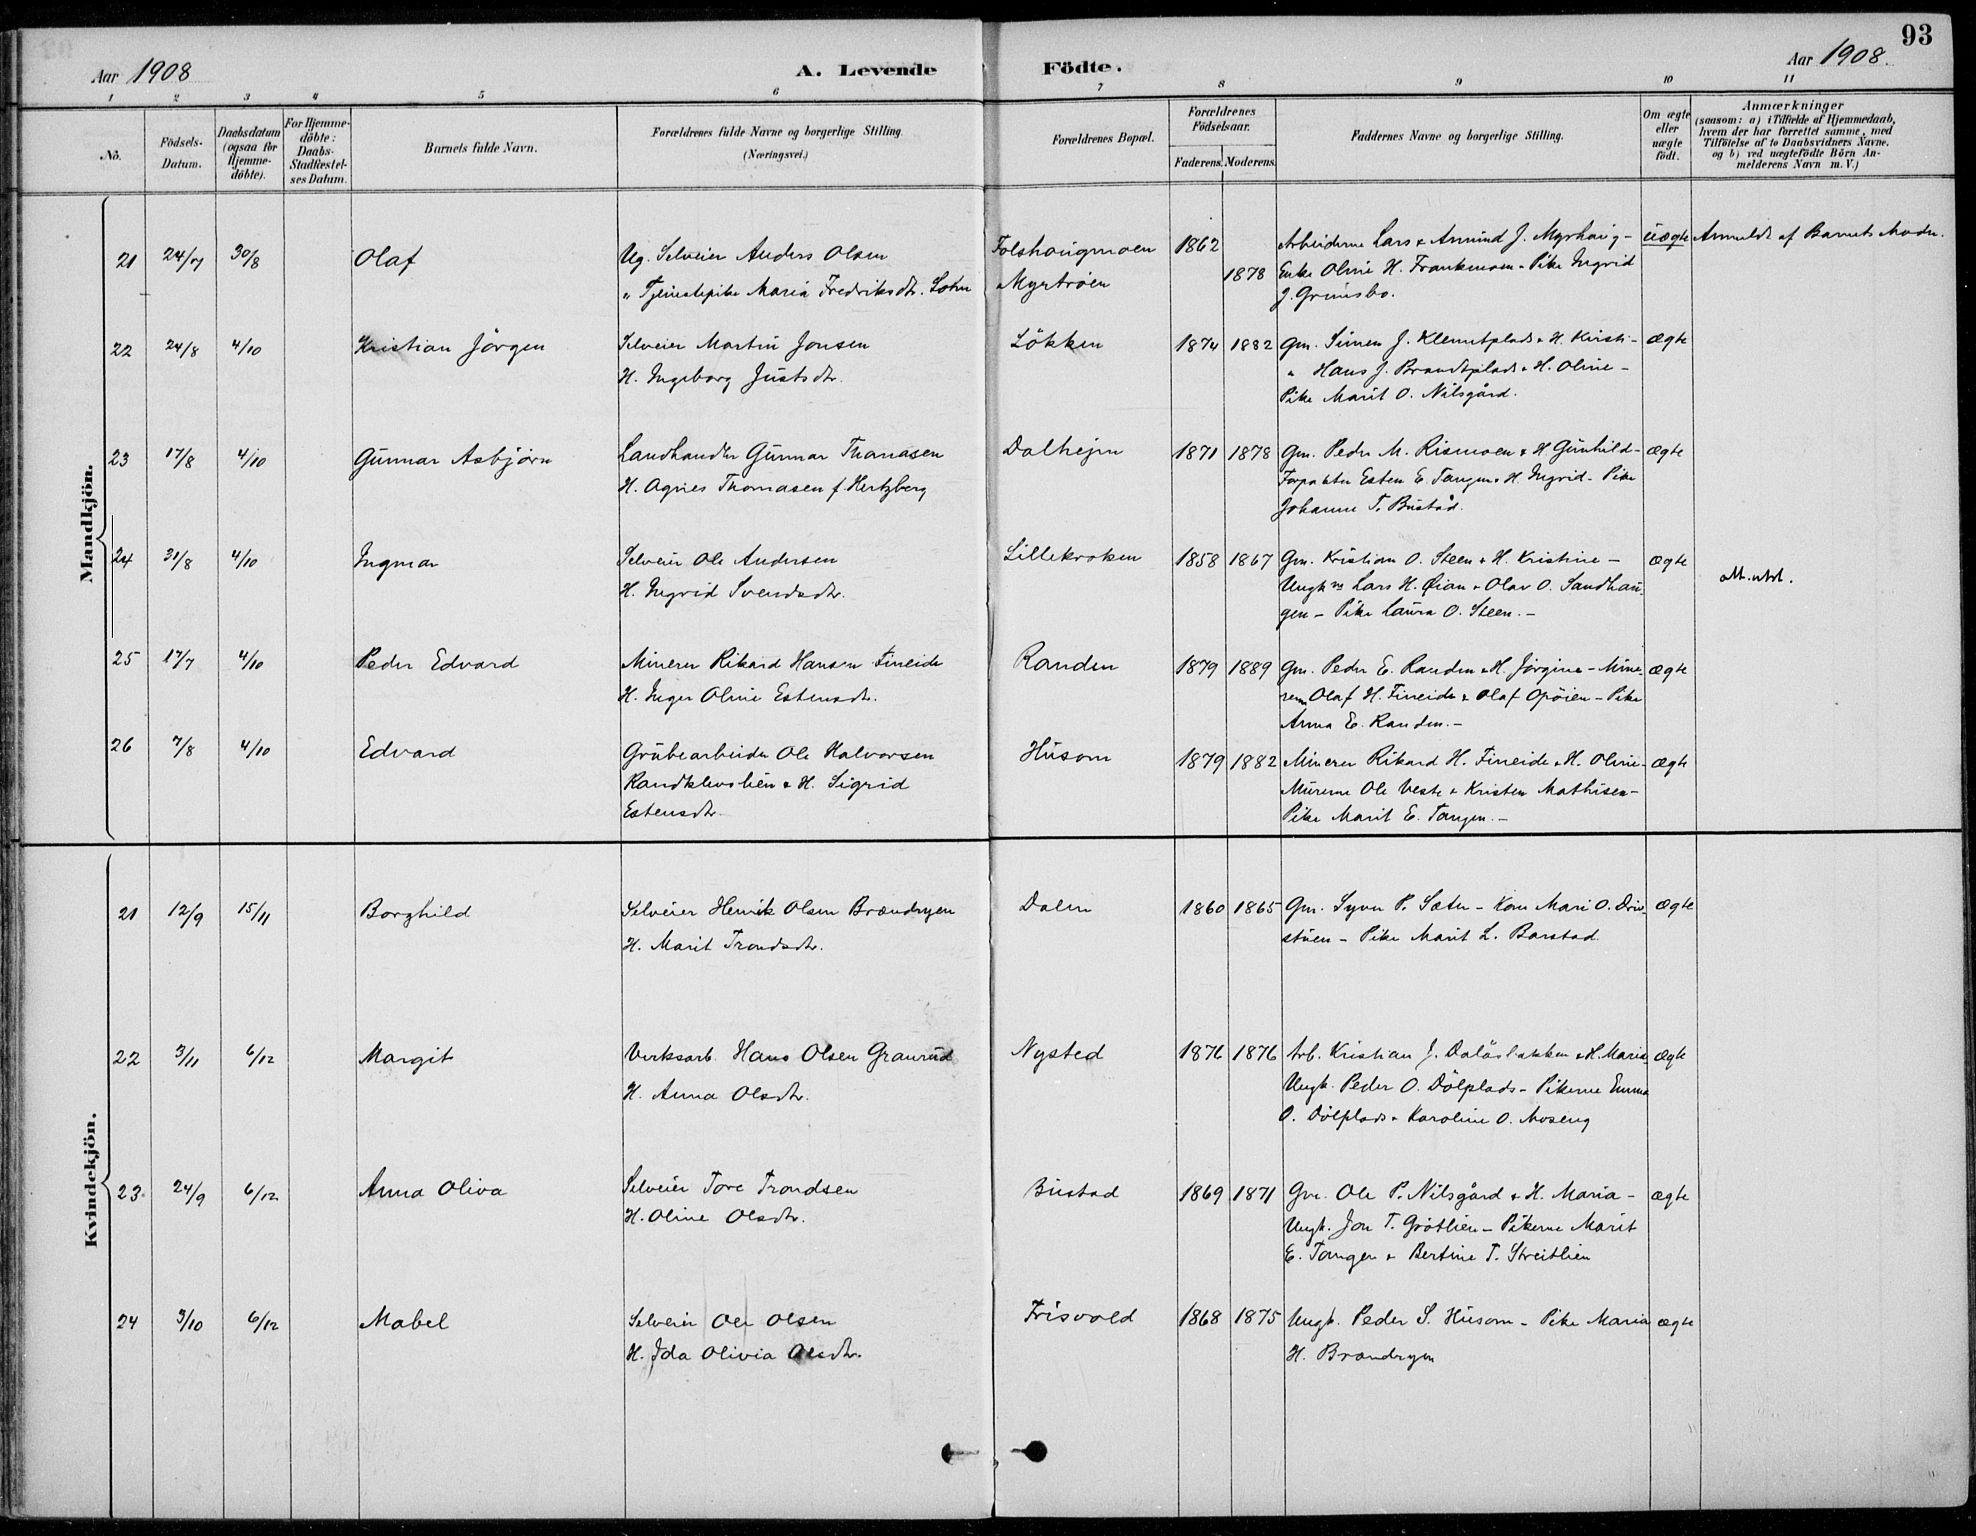 93
Aar 1908
A. Levende Födte.
Aar 1908.
1 2 3 4 5 6 7 8 9 10 11
No.
Födsels-Datum.
Daabsdatum (ogsaa for Hjemme-döbte).
For Hjemme-döbte: Daabs-Stadfæstel-ses Datum.
Barnets fulde Navn.
Forældrenes fulde Navne og borgerlige Stilling.
(Næringsvei.)
Forældrenes Bopæl.
Forældrenes Födselsaar.
Faderens. Moderens.
Faddernes Navne og borgerlige Stilling.
Om ægte eller uægte födt.
Anmærkninger
(saasom: a) i Tilfælde af Hjemmedaab,
hvem der har forrettet samme, med
Tilföielse af to Daabsvidners Navne,
og b) ved uægtefödte Börn An-
melderens Navn m.V.)
Mandkjön.
21 24/7 30/8 Olaf Ug. Selveier Anders Olsen Folshaugmoen 1862 Arbeiderne Lars & Amund J. Myrhaug - uægte Anmeldt af Barnets Moder.
" Tjenestepike Maria Fredriksdtr. Myrtrøen 1878 Enke Oline H. Frankmoen - Pike Ingrid
J. Grimsbo.
22 24/8 4/10 Kristian Jörgen Selveier Martin Jonsen Lökken 1874 1882 Gm. Simen J. Klemetplads & H. Kirsti - ægte
H. Ingeborg Justsdtr. " Hans J. Brandtplads & H. Oline -
Pike Marit O. Nilsgård.
23 17/8 4/10 Gunnar Asbjörn Landhandler Gunnar Thomasen Dalhejm 1871 1878 Gm. Peder M. Rismoen & H. Gunhild - ægte
H. Agnes Thomasen f. Hertzberg Forpakter Esten E. Tangen & H. Ingrid - Pike
Johanne T. Bustad.
24 31/8 4/10 Ingmar Selveier Ole Andersen Lillekroken 1858 1867 Gm. Kristian O. Steen & H. Kristine - ægte
H. Ingrid Svendsdtr. Ungk. Lars H. Øian & Olav O. Sandhau-
gen - Pike Laura O. Steen. -
att. utst.
25 17/7 4/10 Peder Edvard Minerer Rikard Hansen Fineide Randen 1879 1889 Gm. Peder E. Randen & H. Jörgine - Mine- ægte
H. Inger Oline Estensdtr. rerne Olaf H. Fineide & Olaf Opöien - Pike
Anna E. Randen. -
26 7/8 4/10 Edvard Grubearbeider Ole Halvorsen Husom 1879 1882 Minerer Rikard H. Fineide & H. Oline - ægte
Randklevslien & H. Sigrid Murerne Ole Veste & Kristen Mathisen -
Estensdtr. Pike Marit E. Tangen. -
Kvindekjön.
21 12/9 15/11 Borghild Selveier Henrik Olsen Brændryen Dalen 1860 1865 Gm. Syver P. Sæter - Kone Mari O. Driv- ægte
H. Marit Trondsdtr. stuen - Pike Marit L. Barstad.
22 3/11 6/12 Margit Verksarb. Hans Olsen Granrud Nysted 1876 1876 Arb. Kristian J. Dalåsbakken & H. Maria ægte
H. Anna Olsdtr. Ungk. Peder O. Dölplads - Pikerne Emma
O. Dölplads & Karoline O. Moseng
23 24/9 6/12 Anna Oliva Selveier Tore Trondsen Bustad 1869 1871 Gm. Ole P. Nilsgård & H. Maria - ægte
H. Oline Olsdtr. Ungk. Jon T. Grötlien - Pikerne Marit
E. Tangen & Bertine T. Streitlien
24 3/10 6/12 Mabel Selveier Ole Olsen Frisvold 1868 1875 Ungk. Peder S. Husom - Pike Maria ægte
H. Ida Olivia Olsdtr. H. Brændryen